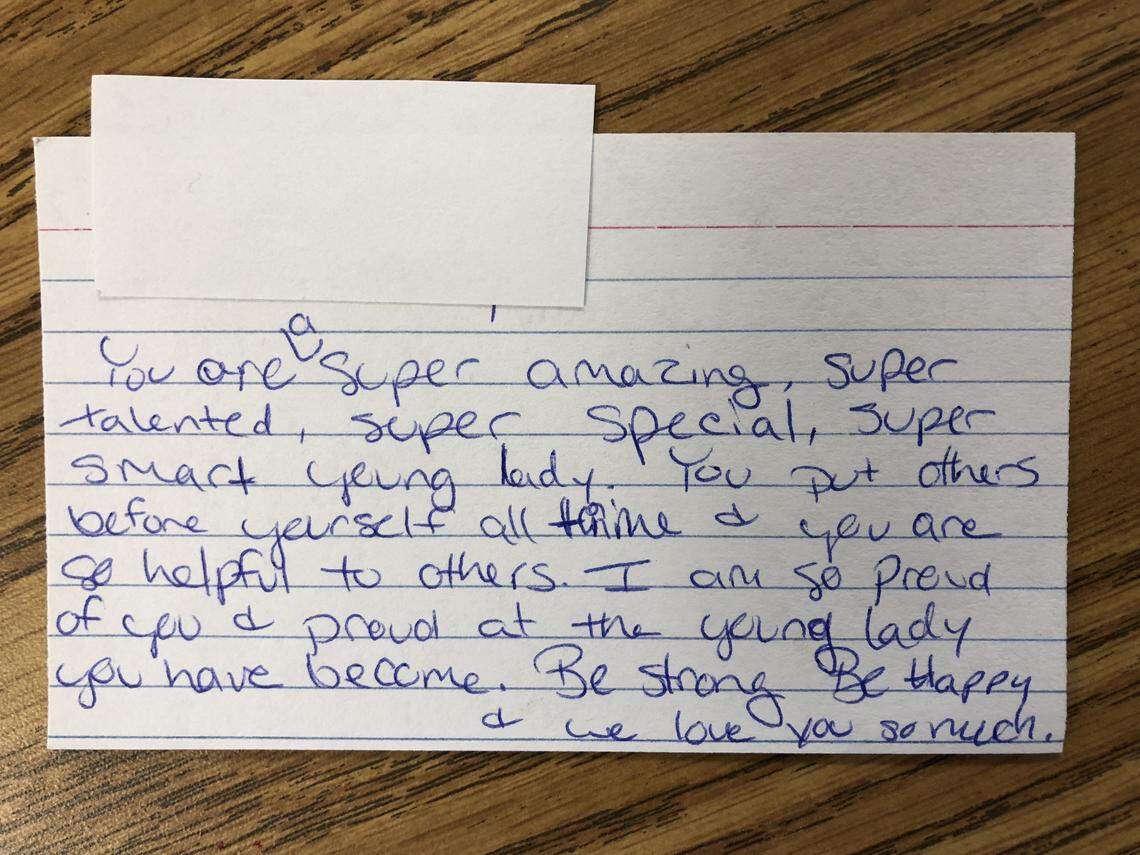 You are a super amazing, super
talented, super special, super
smart young lady. You put others
before yourself all time & you are
so helpful to others. I am so proud
of you & proud at the young lady
you have become. Be strong Be Happy
& we love you so much.